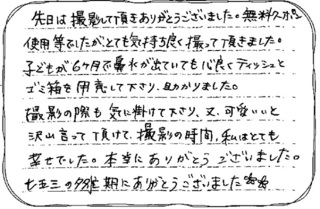 先日は撮影して頂きありがとうございました。無料クーポン
使用等でしたがとても気持ち良く撮って頂きました。
子どもが6ヶ月で鼻水が出ていても心良くティッシュと
ゴミ箱を用意して下さり、助かりました。
撮影の際も気に掛けて下さり、又、可愛いと
沢山言って頂けて、撮影の時間、私はとても
幸せでした。本当にありがとうございました。
七五三の繁忙期にありがとうございました